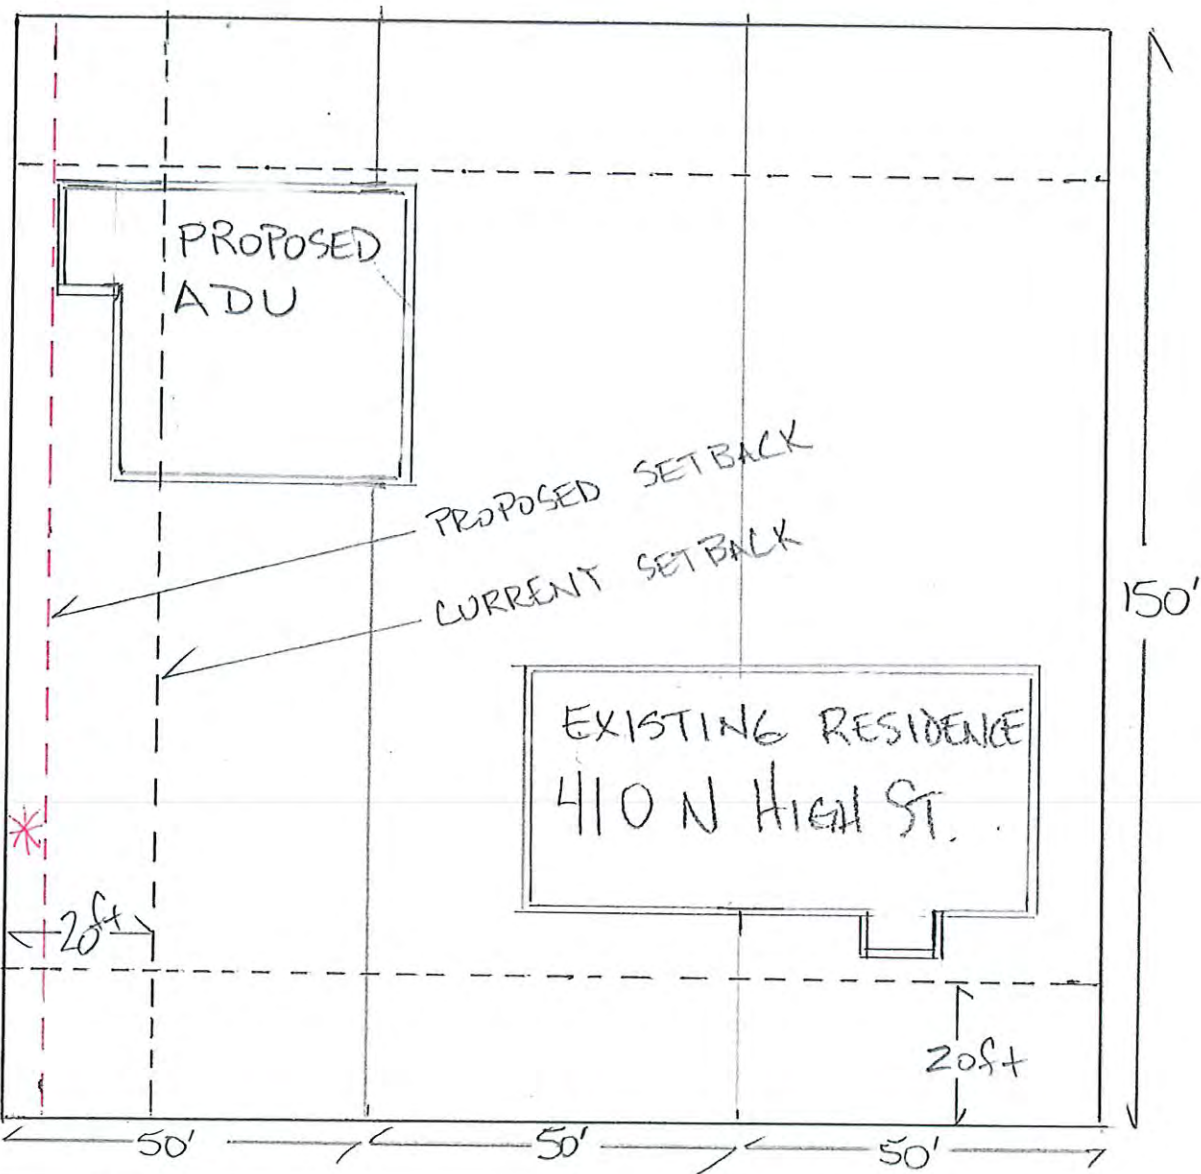 PROPOSED
ADU
PROPOSED SETBACK
CURRENT SETBACK
150'
EXISTING RESIDENCE
410 N HIGH ST.
*
20ft
20ft
50'
50'
50'